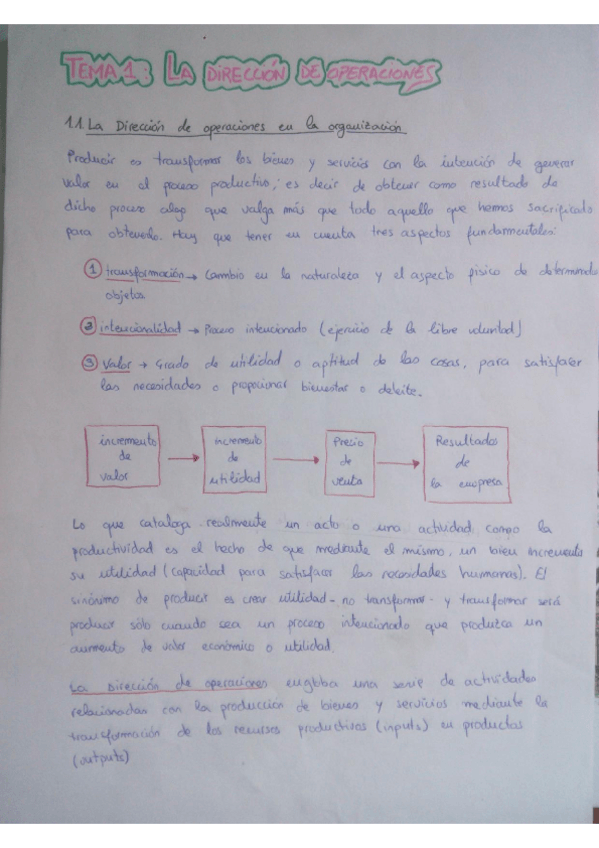 TEMA 1: LA DIRECCIÓN DE OPERACIONES
1.1 La Dirección de operaciones en la organización.
Producir es transformar los bienes y servicios con la intención de generar
valor en el proceso productivo; es decir de obtener como resultado de
dicho proceso algo que valga más que todo aquello que hemos sacrificado
para obtenerlo. Hay que tener en cuenta tres aspectos fundamentales:
1 transformación → Cambio en la naturaleza y el aspecto físico de determinado
objetos.
2 intencionalidad → Proceso intencionado (ejercicio de la libre voluntad)
3 Valor → Grado de utilidad o aptitud de las cosas, para satisfacer
las necesidades o proporcionar bienestar o deleite.
incremento de valor → incremento de utilidad → Precio de venta → Resultados de la empresa
Lo que cataloga realmente un acto o una actividad como la
productividad es el hecho de que mediante el mismo, un bien incrementa
su utilidad (capacidad para satisfacer las necesidades humanas). El
sinónimo de producir es crear utilidad - no transformar - y transformar será
producir sólo cuando sea un proceso intencionado que produzca un
aumento de valor económico o utilidad.
La Dirección de operaciones engloba una serie de actividades
relacionadas con la producción de bienes y servicios mediante la
transformación de los recursos productivos (inputs) en productos
(outputs)